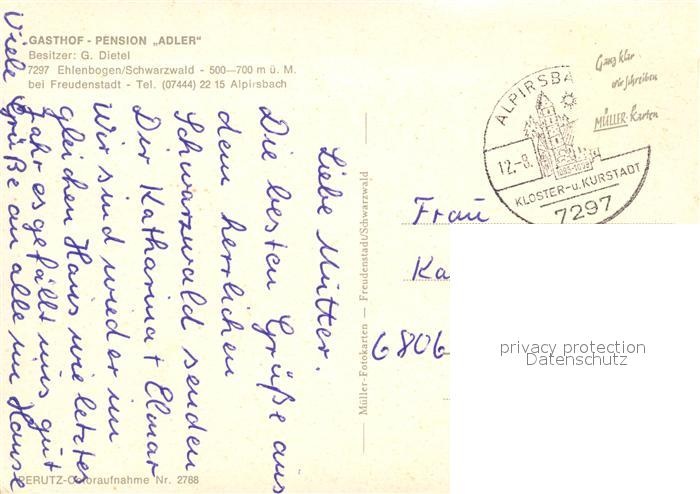 GASTHOF - PENSION „ADLER"
Besitzer: G. Dietel
7297 Ehlenbogen/Schwarzwald - 500—700 m ü. M.
bei Freudenstadt - Tel. (07444) 22 15 Alpirsbach
Liebe Mutter.
Die besten Grüße aus
dem herrlichen
Schwarzwald senden
Dir Katharina + Elmar
Wir sind wieder im
gleichen Haus wie letztes
Jahr es gefällt uns gut
Viele Grüße an alle im Hause
PERUTZ-Coloraufnahme Nr. 2768
Müller-Fotokarten — Freudenstadt/Schwarzwald
ALPIRSBA
12.-8.
KLOSTER-u. KURSTADT
7297
Ganz klar
wir schreiben
MÜLLER-Karten
Frau
Ka
6806
privacy protection
Datenschutz